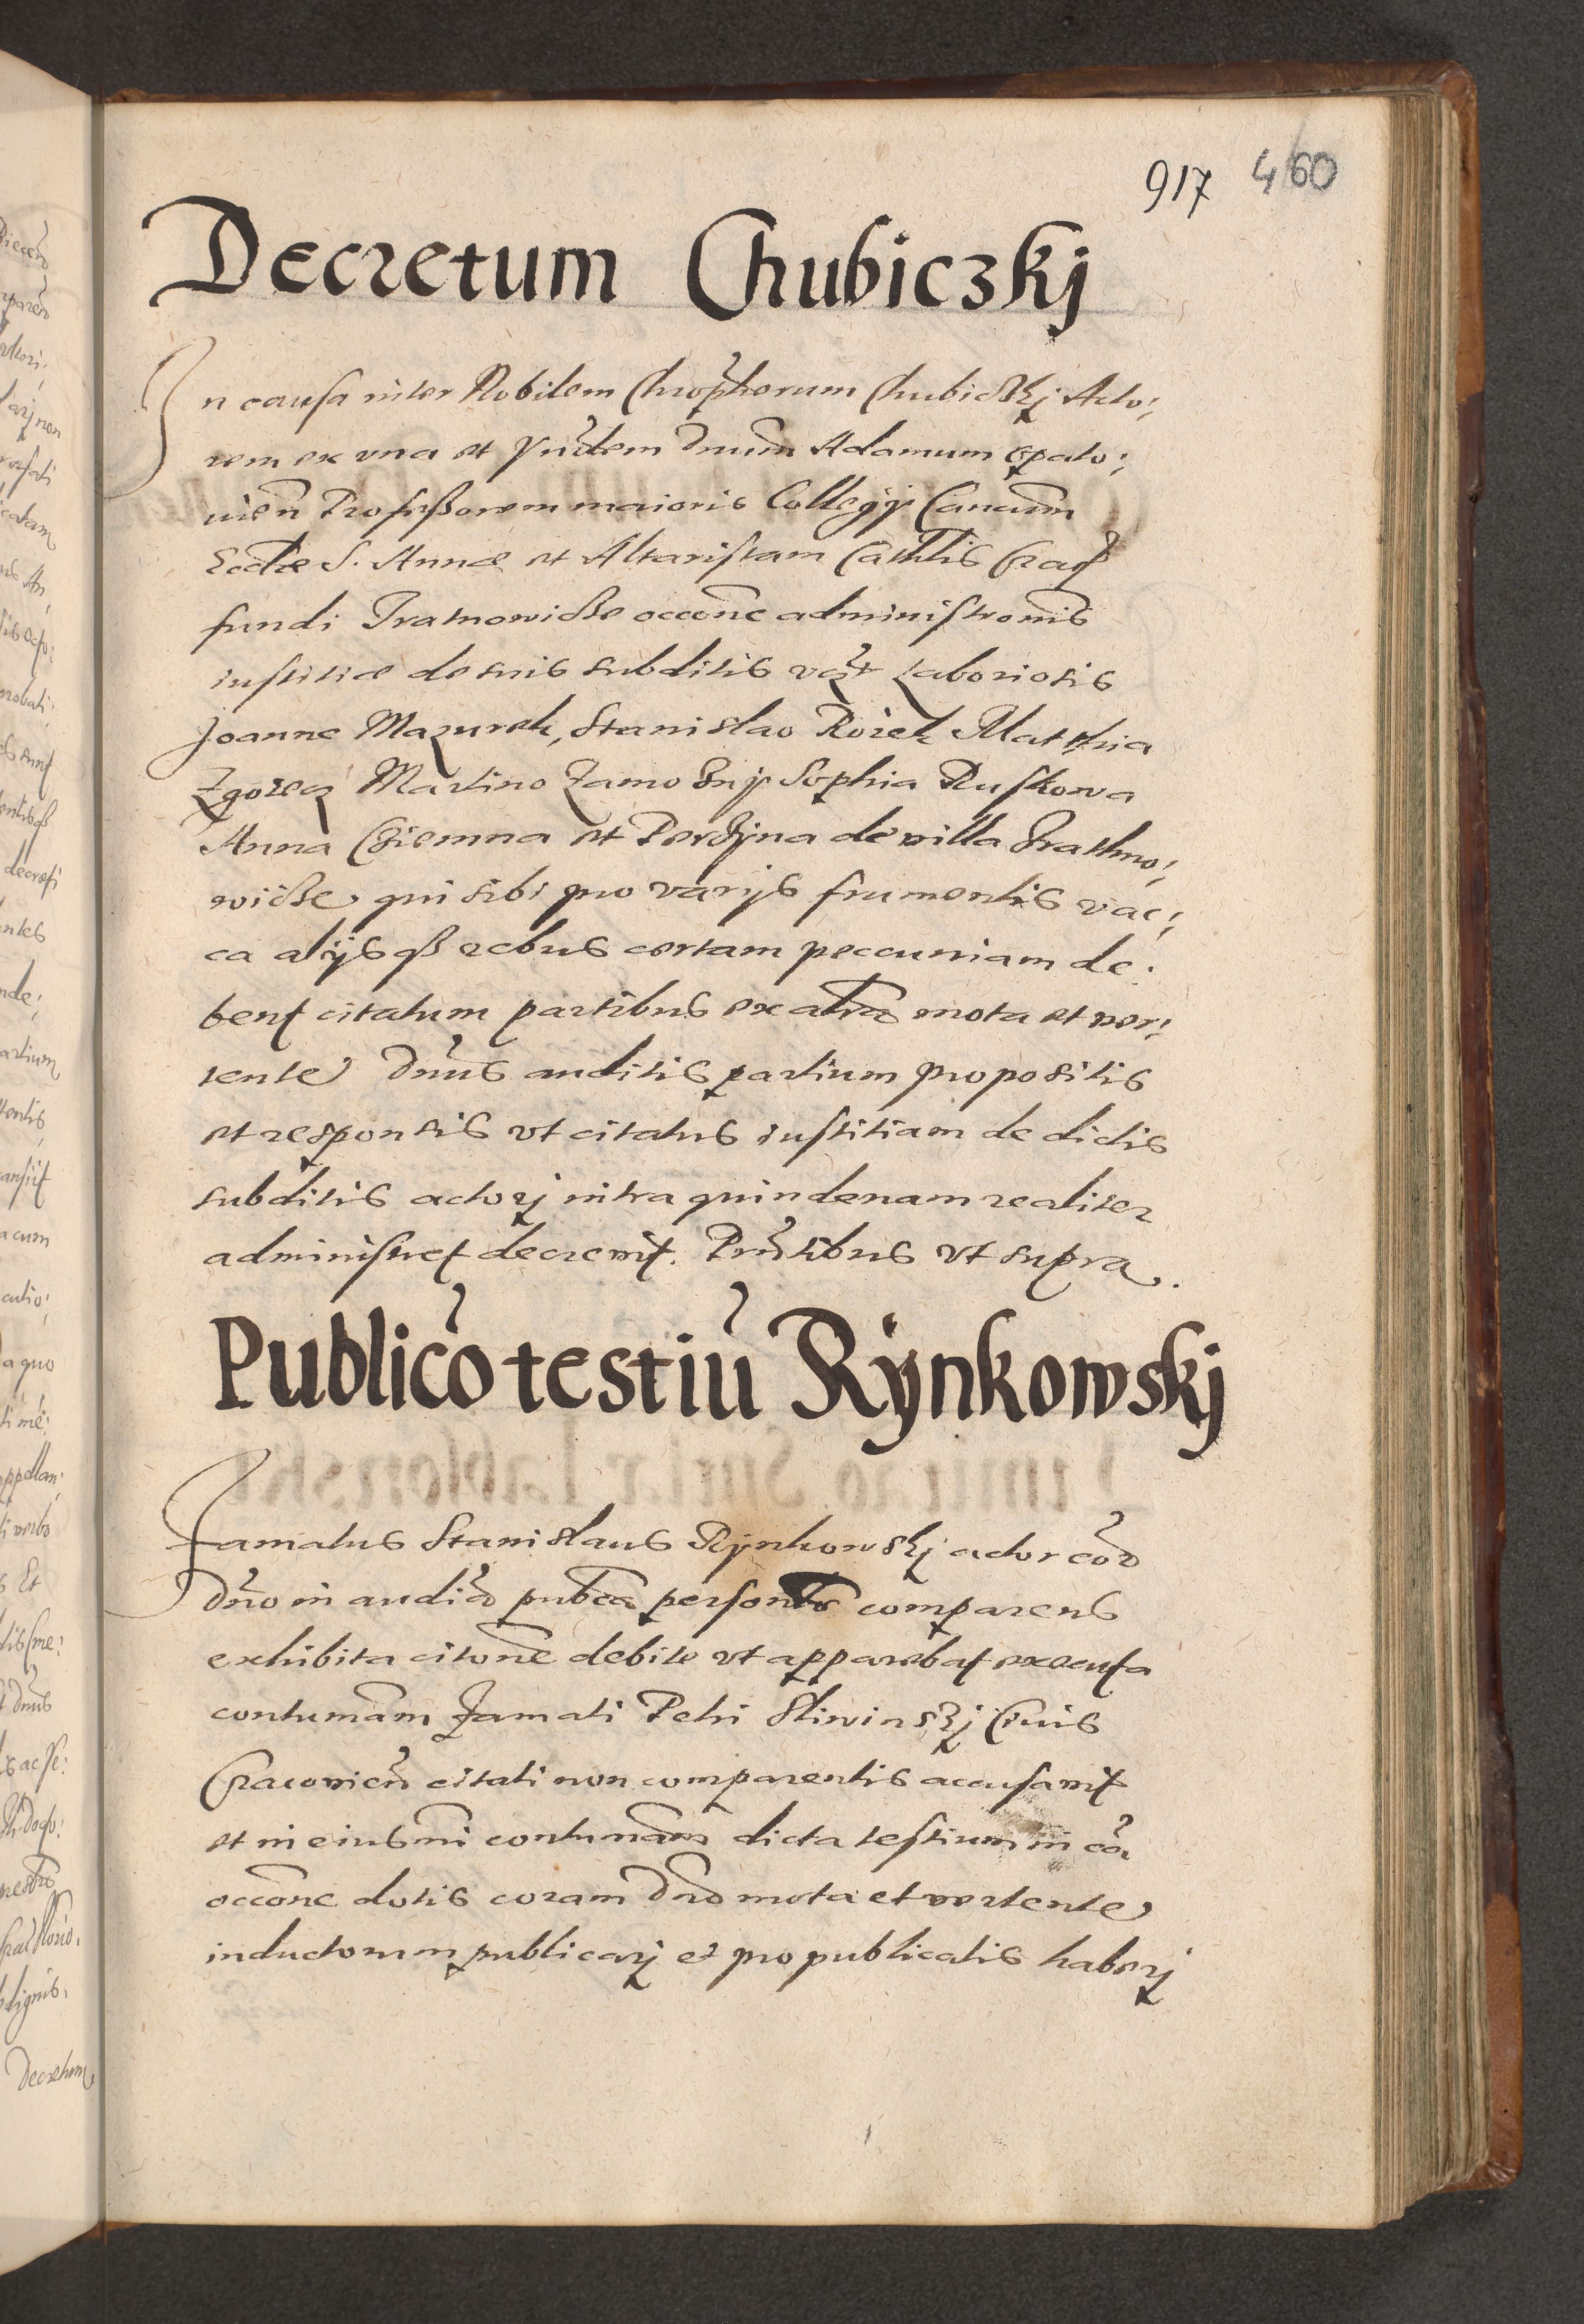 917 460
Decretum Chubiczkj
In causa inter Nobilem Chrophorum Chubiczkj Acto:
rem ex vna et Vndem Dnum Adamum Opato:
uien Professorem maioris Collegij Cancum
Eccliæ S. Annæ et Altaristam Cathlis Crac
fundi Pratnowicze occone administronis
iustitiæ de suis subditis vat Laboriosis
Joanne Mazurek, Stanislao Rozek Matthia
Martino Sophia Ruskowa
Anna et de villa Prathno:
wicze qui sibi pro varijs frumentis vac:
ca alijsqz rebus certam peccuniam de:
bent citatum partibus ex altra mota et ver:
tente Dnus auditis partium propositis
et responsis vt citatus iustitiam de dictis
subditis actorj intra quindenam realiter
administret decrevit. Pntibus vt supra.
Publico testiu Rÿnkowskj
Famatus Stanislaus Rÿnkowskj actor cora
Dno in audia publca personlr comparens
exhibita citone debite vt apparebat executa
contumam Famati Petri Sliwinskj Ciuis
Cracouien citati non comparentis accusauit
et in eiusmi contumam dicta testium in ca
occone dotis coram Dno mota et vertente
inductorum publicarj et pro publicatis haberj